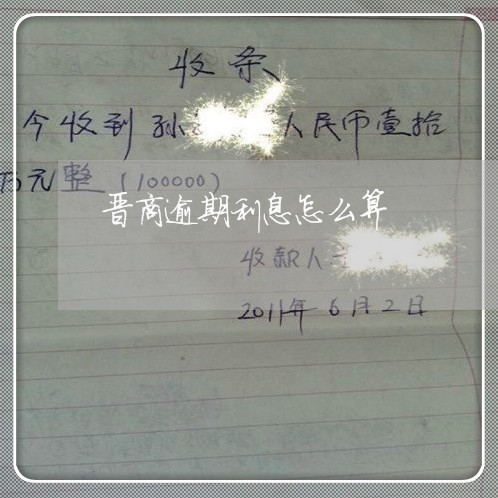 收条
今收到孙 人民币壹拾
万元整(100000)
晋商逾期利息怎么算
收款人
2011年6月2日